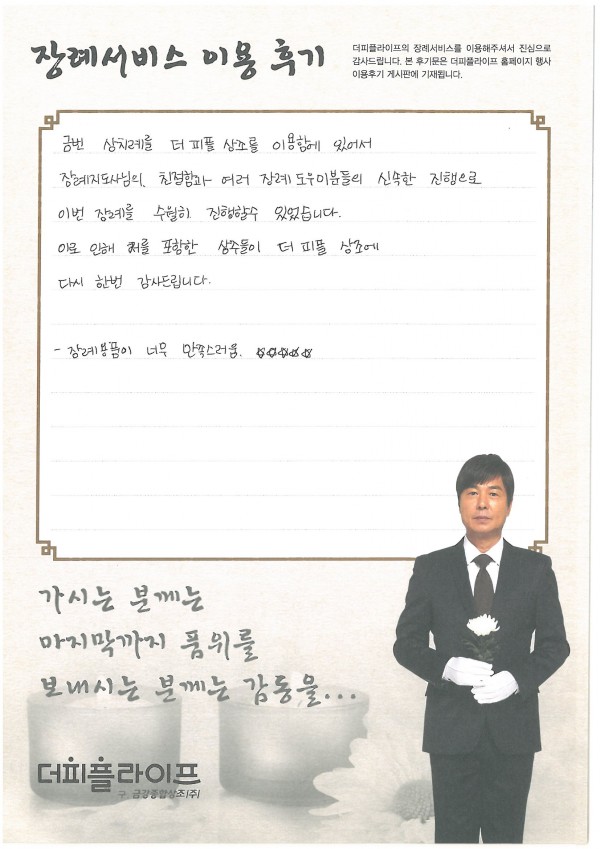 장례서비스 이용 후기
더피플라이프의 장례서비스를 이용해주셔서 진심으로
감사드립니다. 본 후기문은 더피플라이프 홈페이지 행사
이용후기 게시판에 기재됩니다.
금번 상치례를 더 피플 상조를 이용함에 있어서
장례지도사님의, 친절함과 여러 장례 도우미분들의 신속한 진행으로
이번 장례를 수월히 진행할수 있었습니다.
이로 인해 저를 포함한 상주들이 더 피플 상조에
다시 한번 감사드립니다.
- 장례용품이 너무 만족스러움. ☆☆☆☆☆
가시는 분께는
마지막까지 품위를
보내시는 분께는 감동을...
더피플라이프
구. 금강종합상조(주)